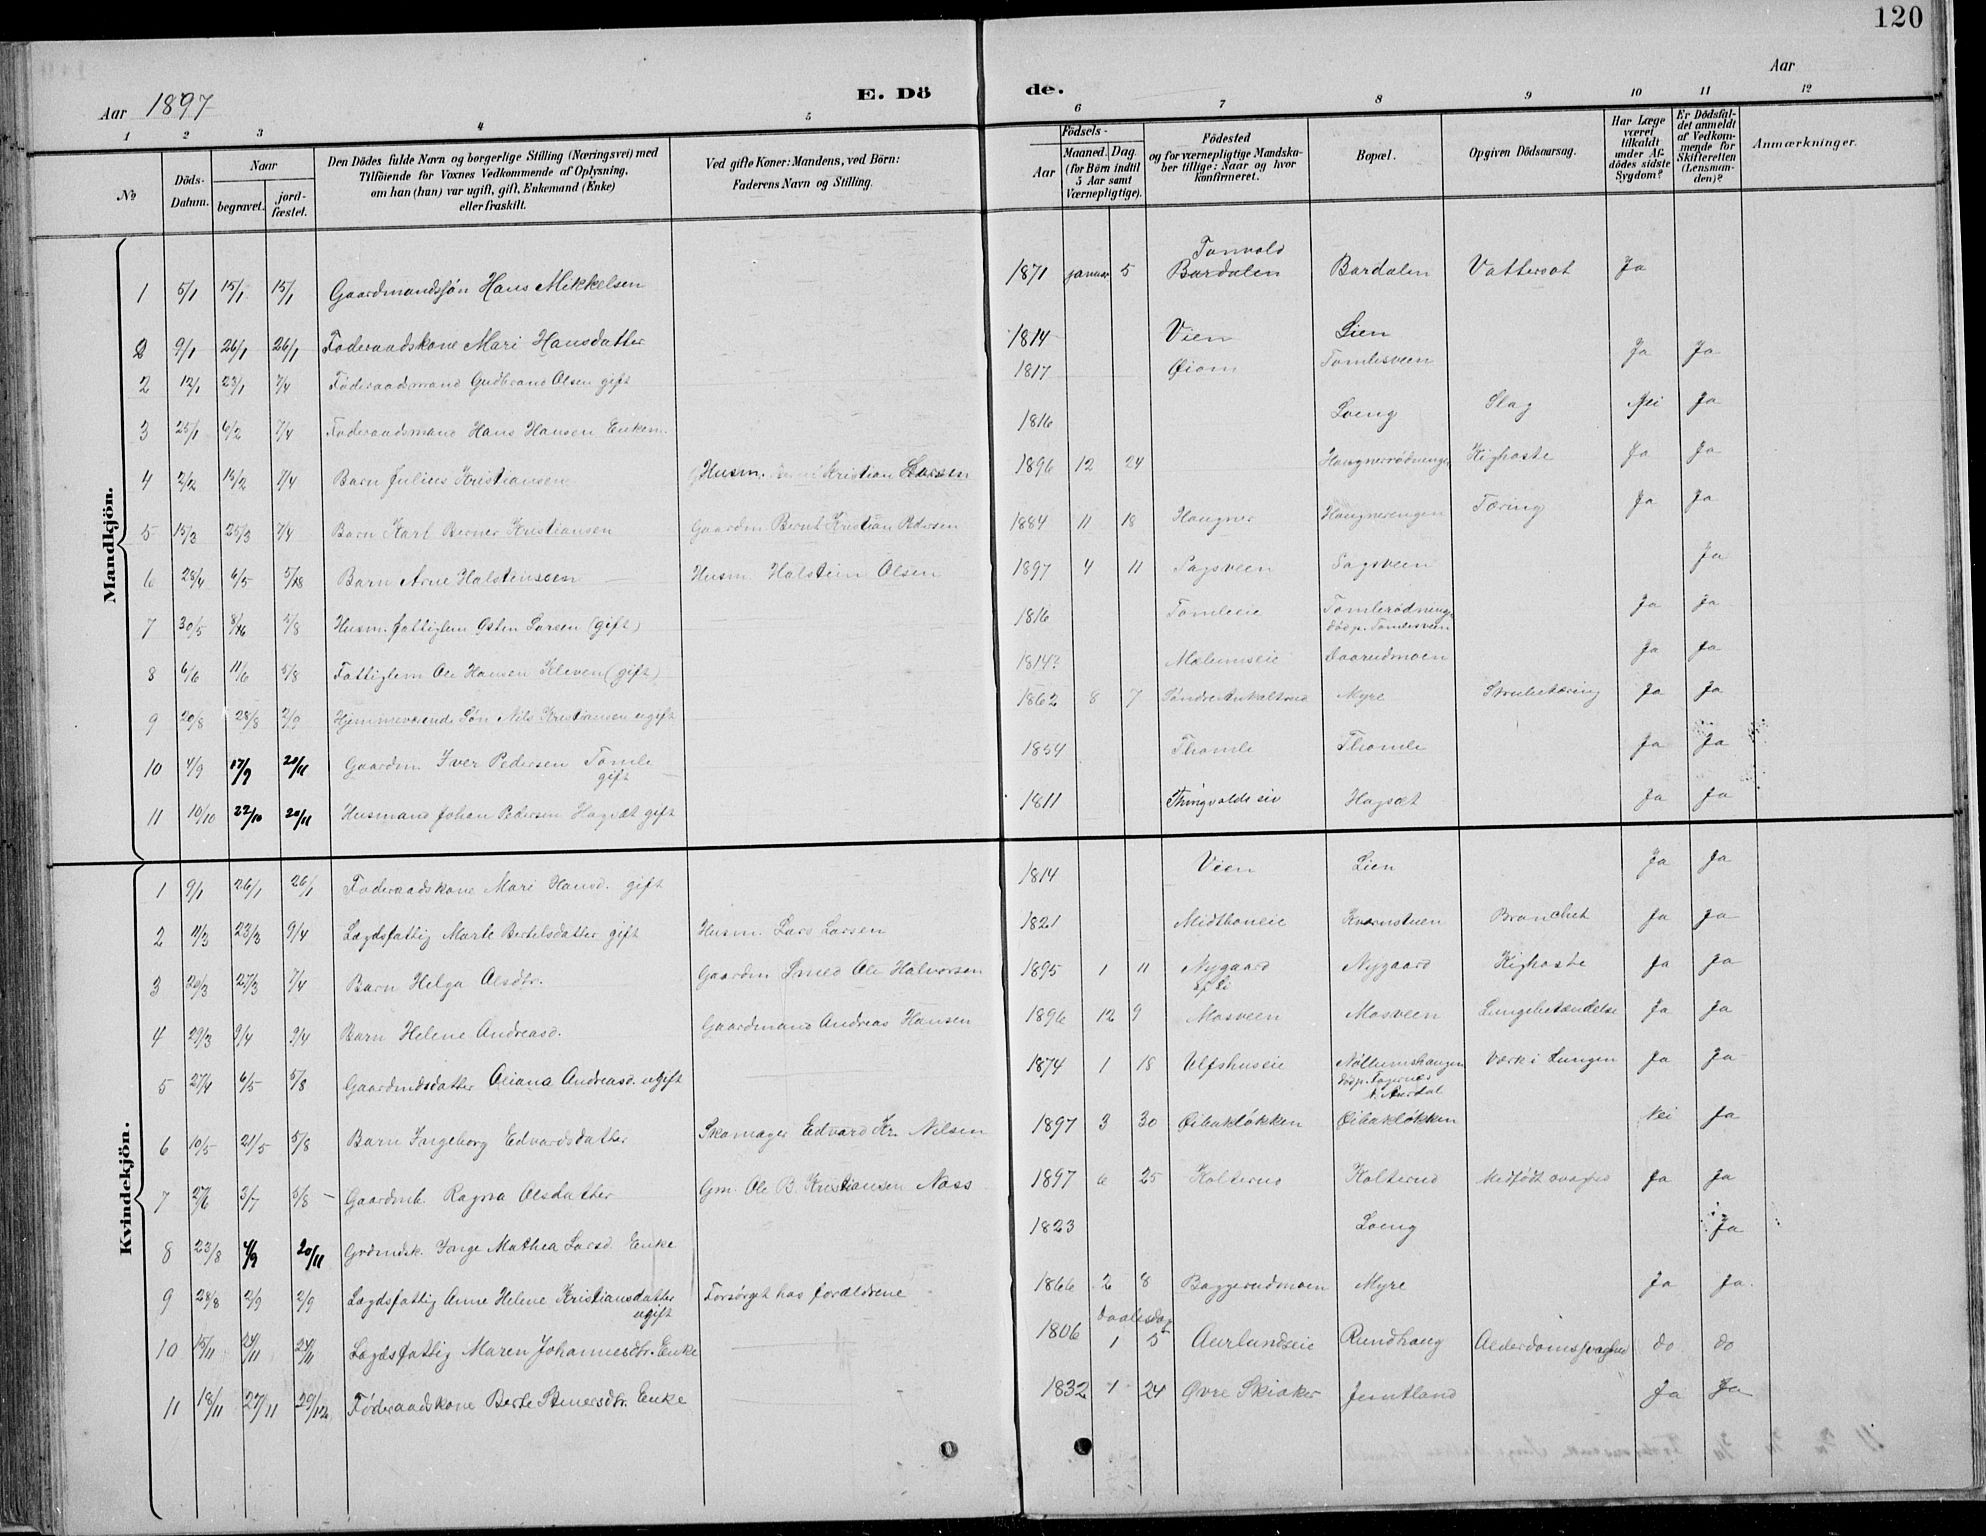 120
Aar 1897
E. Dö de.
Aar
1 2 3 4 5 6 7 8 9 10 11 12
No
Döds-Datum.
Naar
begravet.
jord-fæstet.
Den Dödes fulde Navn og borgerlige Stilling (Næringsvei) med
Tilföiende for Voxnes Vedkommende af Oplysning,
om han (hun) var ugift, gift, Enkemand (Enke)
eller fraskilt.
Ved gifte Koner: Mandens, ved Börn:
Faderens Navn og Stilling.
Födsels-
Aar
Maaned. Dag.
(for Börn indtil
5 Aar samt
Værnepligtige).
Födested
og for værnepligtige Mandska-
ber tillige: Naar og hvor
konfirmeret.
Bopæl.
Opgiven Dödsaarsag.
Har Læge
været
tilkaldt
under Af-
dödes sidste
Sygdom?
Er Dödsfal-
det anmeldt
af Vedkom-
mende for
Skifteretten
(Lensman-
den)?
Anmærkninger.
Mandkjön.
1 5/1 15/1 15/1 Gaardmandssøn Hans Mikkelsen 1871 januar 5 Tonvold Bardalen Bardalen Vattersot Ja
2 9/1 26/1 26/1 Føderaadskone Mari Hansdatter 1814 Vien Lien
2 12/1 23/1 7/4 Føderaadsmand Gudbrand Olsen gift 1817 Øiom Tomlesveen Ja Ja
3 25/1 6/2 7/4 Føderaadsmand Hans Hansen Enkem. 1816 Loeng Slag Nei Ja
4 2/2 15/2 7/4 Barn Julius Kristiansen Husm. Kristian Larsen 1896 12 24 Haugnerrødningen Kighoste Ja Ja
5 15/3 25/3 7/4 Barn Karl Berner Kristiansen Gaardm Bernt Kristian Pedersen 1884 11 18 Haugner Haugnerengen Tæring Ja Ja
6 28/4 6/5 5/8 Barn Arne Halstensen Husm. Halstein Olsen 1897 4 11 Sagsveen Sagsveen Ja
7 30/5 8/6 5/8 Husm. fattiglem Østen Larsen (gift) 1816 Tomleeie Tomlerødninge
dødp. Tomlesveen Ja Ja
8 6/6 11/6 5/8 Fattiglem Ole Hansen Kleven (gift) 1814? Mælumseie Daarudmoen Ja Ja
9 20/8 28/8 2/9 Hjemmeværende Søn Nils Kristiansen ugift 1862 8 7 Søndre Ankeltrud Myre Strubetæring Ja Ja
10 4/9 17/9 20/11 Gaardm. Iver Pedersen Tomle
gift 1854 Thomle Thomle Ja Ja
11 10/10 22/10 20/11 Husmand Johan Pedersen Hagsæt gift 1811 Thingvoldseie Hagsæt Ja Ja
Kvindekjön.
1 9/1 26/1 26/1 Føderaadskone Mari Hansd. gift 1814 Vien Lien Ja Ja
2 11/3 23/3 9/4 Lægdsfattig Marte Bertelsdatter gift Husm. Lars Larsen 1821 Midthoneie Kvernstuen Bronchet Ja Ja
3 20/3 27/3 7/4 Barn Helga Olsdtr. Gaardm Smed Ole Halvorsen 1895 1 11 Nygaard
af Li Nygaard Kighoste Ja Ja
4 29/3 9/4 9/4 Barn Helene Andreasd. Gaardmand Andreas Hansen 1896 12 9 Mosveen Mosveen Lungebetændelse Ja Ja
5 27/4 6/5 5/8 Gaardmdsdatter Oliana Andreasd. ugift 1874 1 18 Ulfshuseie Nøllumshaugen
dødp. Fagernes
N. Aurdal Værk i Lungen Ja Ja
6 10/5 21/5 5/8 Barn Ingeborg Edvardsdatter Skomager Edvard Kr. Nilsen 1897 3 30 Øibakløkken Øibakløkken Nei Ja
7 27/6 3/7 5/8 Gaardmb. Ragna Olsdatter Gm. Ole B. Kristiansen Nass 1897 6 25 Kolterud Kolterud Medfødt svaghed Ja Ja
8 23/8 4/9 20/11 Grdmdsk. Inge Mathea Larsd. Enke 1823 Loeng Ja
9 28/8 2/9 2/9 Lægdsfattig Anne Helene Kristiansdatter
ugift Forsørget hos forældrene 1866 2 8 Baggerudmoen Myre Ja Ja
10 15/11 24/11 24/11 Lægdsfattig Maren Johannesdtr. Enke 1806 Daabsdag
1 5 Aurlundseie Rundhaug Alderdomssvaghed do do
11 18/11 27/11 29/12 Føderaadskone Berte Steinersdtr. Enke 1832 1 24 Øvre Skiaker Jemtland Ja Ja